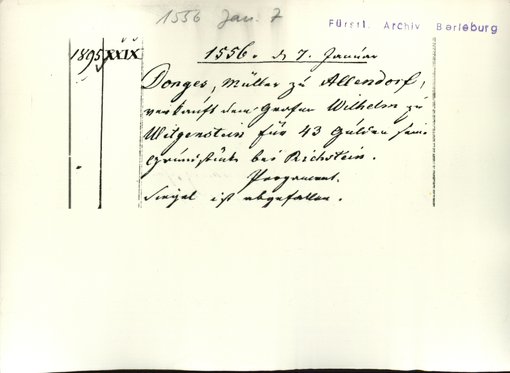 1556 Jan. 7
Fürstl. Archiv Berleburg
1895 XXIX
1556. d. 7. Januar
Donges, Müller zu Allendorf,
verkauft dem Grafen Wilhelm zu
Witgenstein für 43 Gulden seine
Grundstücke bei Richstein.
Pergament.
Siegel ist abgefallen.